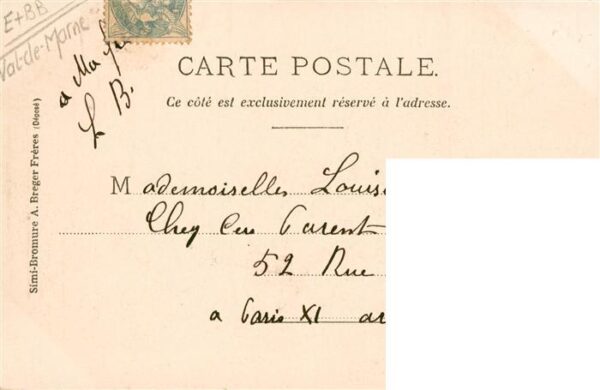 E+BB
Val-de-Marne
a Ma
L B.
CARTE POSTALE.
Ce côté est exclusivement réservé à l'adresse.
Mademoiselle Louis
Chez ses Parent
52 Rue
a Paris XI ar
Simi-Bromure A. Breger Frères (Déposé)